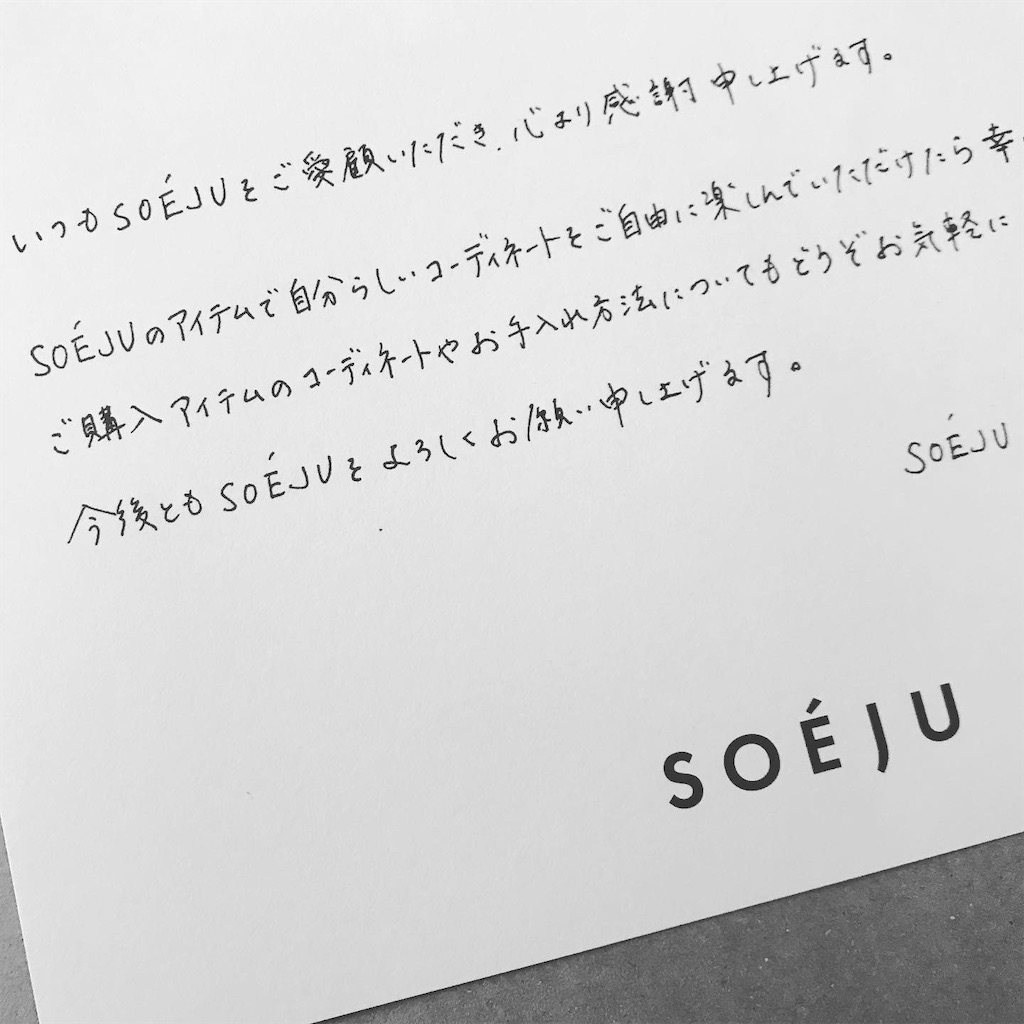 いつもSOÉJUをご愛顧いただき、心より感謝申し上げます。
SOÉJUのアイテムで自分らしいコーディネートをご自由に楽しんでいただけたら幸
ご購入アイテムのコーディネートやお手入れ方法についてもどうぞお気軽に
今後ともSOÉJUをよろしくお願い申し上げます。
SOÉJU
SOÉJU